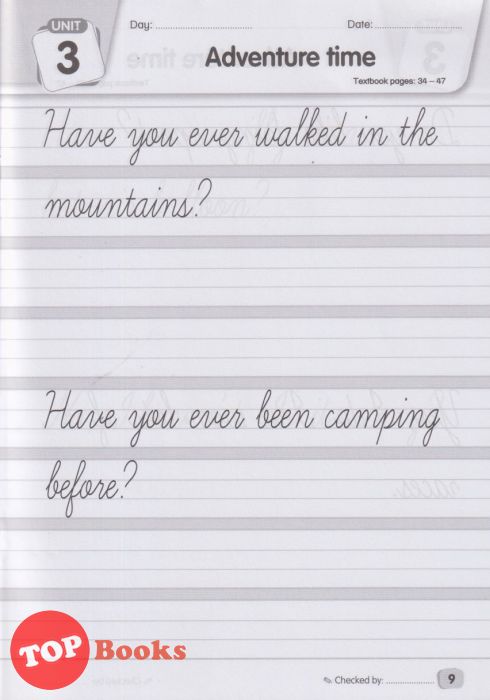 UNIT
3
Day: ............................
Date: ............................
Adventure time
Textbook pages: 34 – 47
Have you ever walked in the
mountains?
Have you ever been camping
before?
TOP Books
Checked by: ..................
9